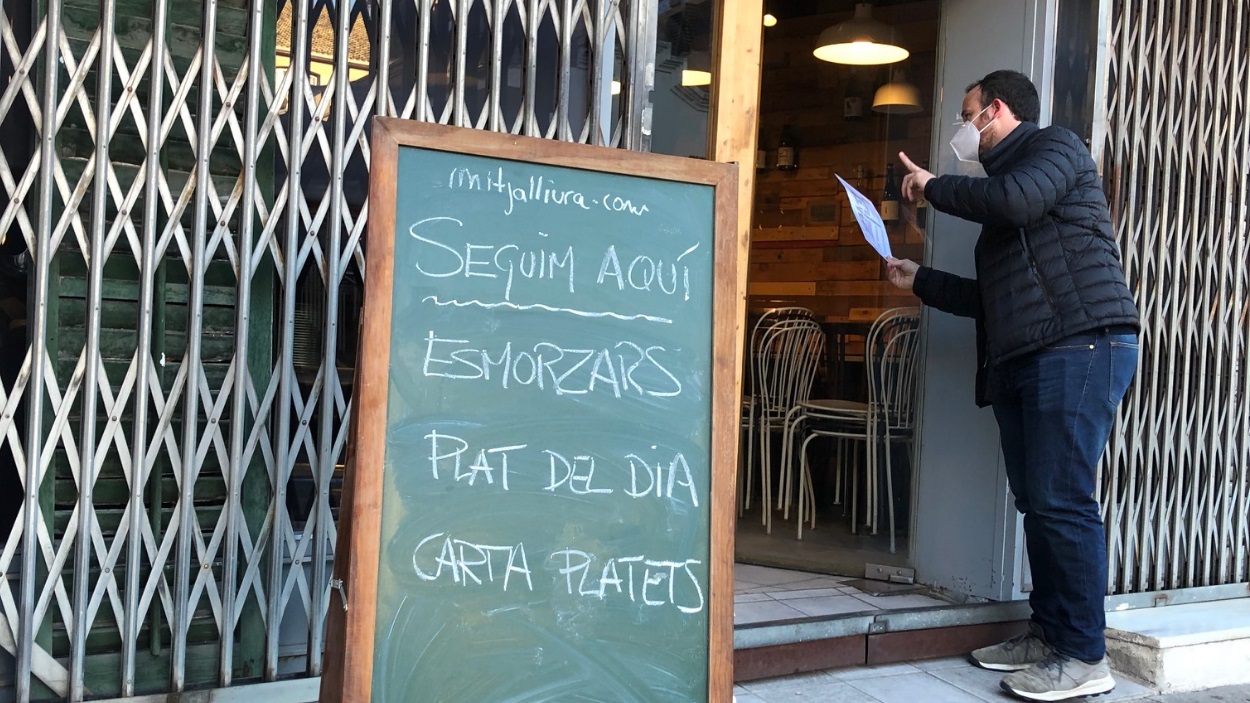 mitjalliura.com
SEGUIM AQUÍ
ESMORZARS
PLAT DEL DIA
CARTA PLATETS